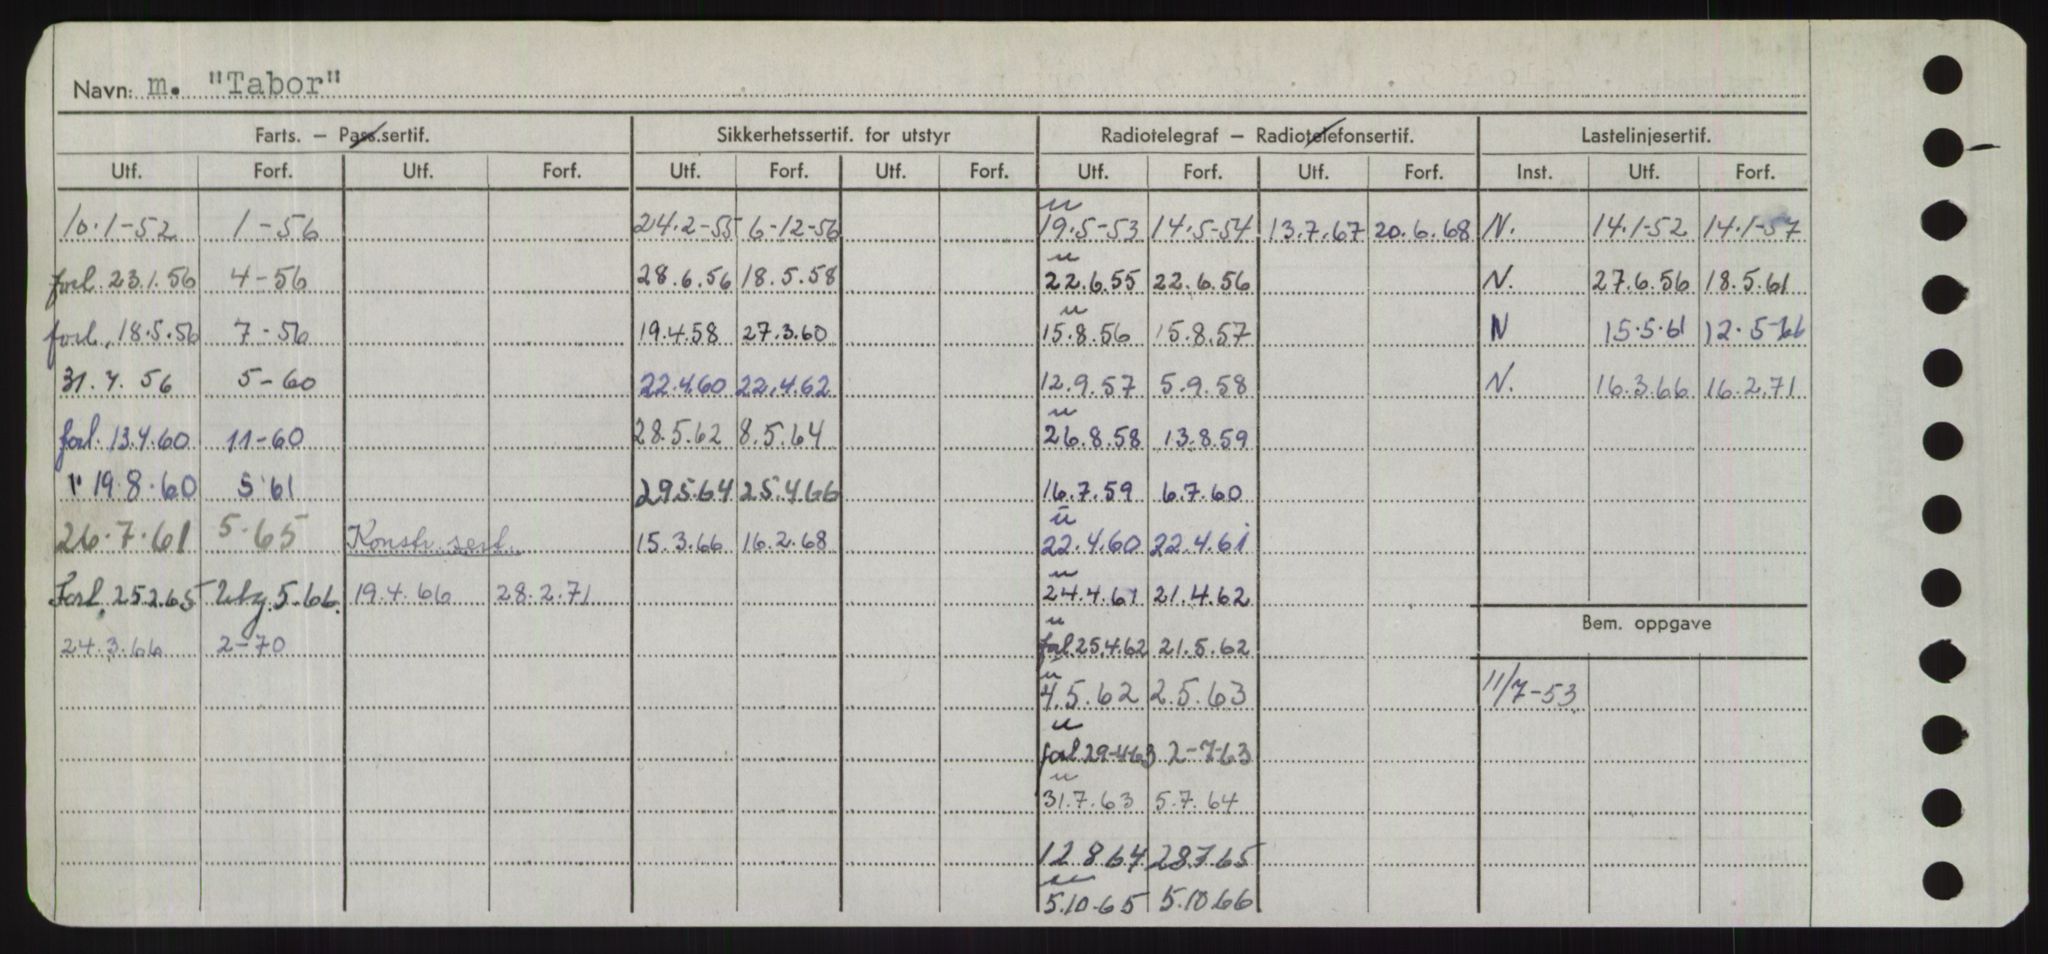 Navn: m. "Tabor"
Farts. – Pass.sertif. Sikkerhetssertif. for utstyr Radiotelegraf – Radiotelefonsertif. Lastelinjesertif.
Utf. Forf. Utf. Forf. Utf. Forf. Utf. Forf. Utf. Forf. Utf. Forf. Inst. Utf. Forf.
10.1-52 1-56 24.2-55 6-12-56 19.5-53 14.5-54 13.7.67 20.6.68 N. 14.1-52 14.1-57
forl. 23.1.56 4-56 28.6.56 18.5.58 22.6.55 22.6.56 N. 27.6.56 18.5.61
forl. 18.5.56 7-56 19.4.58 27.3.60 15.8.56 15.8.57 N 15.5.61 12.5-66
31.7.56 5-60 22.4.60 22.4.62 12.9.57 5.9.58 N. 16.3.66 16.2.71
forl. 13.4.60 11-60 28.5.62 8.5.64 26.8.58 13.8.59
" 19.8.60 5 61 29.5.64 25.4.66 16.7.59 6.7.60
26.7.61 5.65 Konstr. sert. 15.3.66 16.2.68 22.4.60 22.4.61
Forl. 25 2.65 Utg. 5.66. 19.4.66 28.2.71 24.4.61 21.4.62
24.3.66 2-70 forl 25.4.62 21.5.62 Bem. oppgave
4.5.62 2.5.63 11/7-53
forl 29-4-63 2-7-63
31.7.63 5.7.64
12 8 64 28.7.65
5.10.65 5.10.66